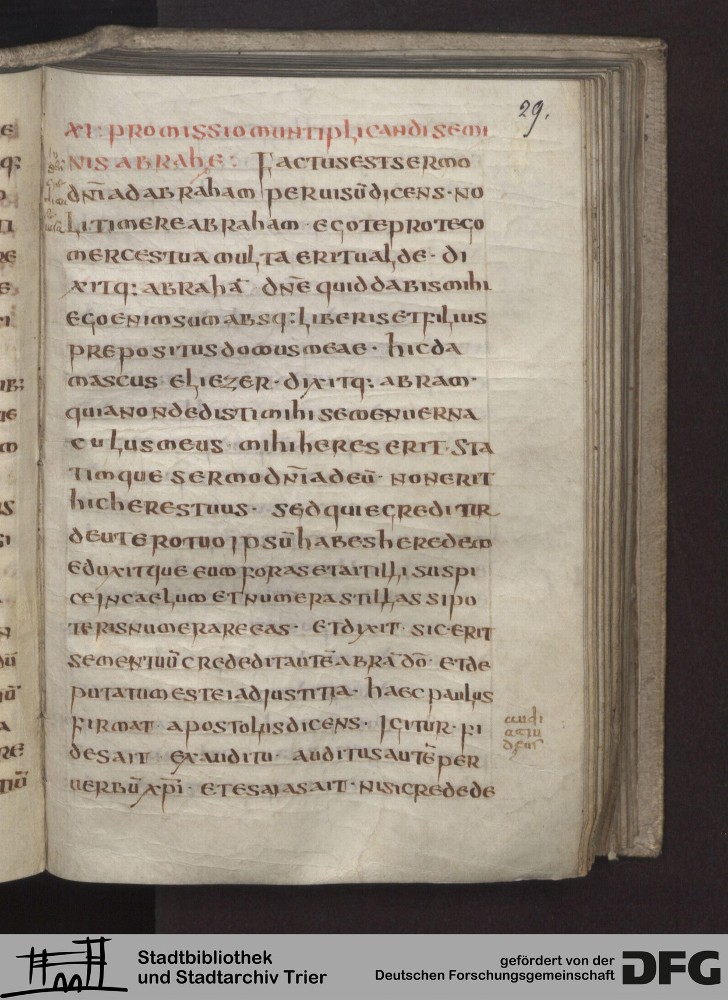 29.
XI: PROMISSIO MUNTIPLICANDI SEMI
NIS ABRAHE: FACTUS EST SERMO
DNI AD ABRAHAM PER UISŪ DICENS· NO
LI TIMERE ABRAHAM· EGO TE PROTEGO
MERCES TUA MULTA ERIT UALDE· DI
XITQ: ABRAHĀ DNE QUID DABIS MIHI
EGO ENIM SUM ABSQ: LIBERIS ET FILIUS
PREPOSITUS DOMUS MEAE· HIC DA
MASCUS ELIEZER· DIXITQ: ABRAM·
QUIA NON DEDISTI MIHI SEMEN UERNA
CULUS MEUS MIHI HERES ERIT· STA
TIMQUE SERMO DNI AD EŪ· NON ERIT
HIC HERES TUUS· SED QUI EGREDITUR
DE UTERO TUO IPSŪ HABES HEREDEM
EDUXITQUE EUM FORAS ET AIT ILLI SUSPI
CE IN CAELUM ET NUMERA STILLAS SI PO
TERIS NUMERARE EAS· ET DIXIT· SIC ERIT
SEMEN TUŪ CREDEDIT AUTĒ ABRĀ DŌ· ET DE
PUTATUM EST EI AD IUSTITIA· HAEC PAULUS
FIRMAT APOSTOLUS DICENS· IGITUR· FI
DES AIT EX AUDITU· AUDITUS AUTĒ PER
UERBŪ XPI· ET ESAIAS AIT· NISI CREDEDE
Stadtbibliothek
und Stadtarchiv Trier
gefördert von der
Deutschen Forschungsgemeinschaft
DFG